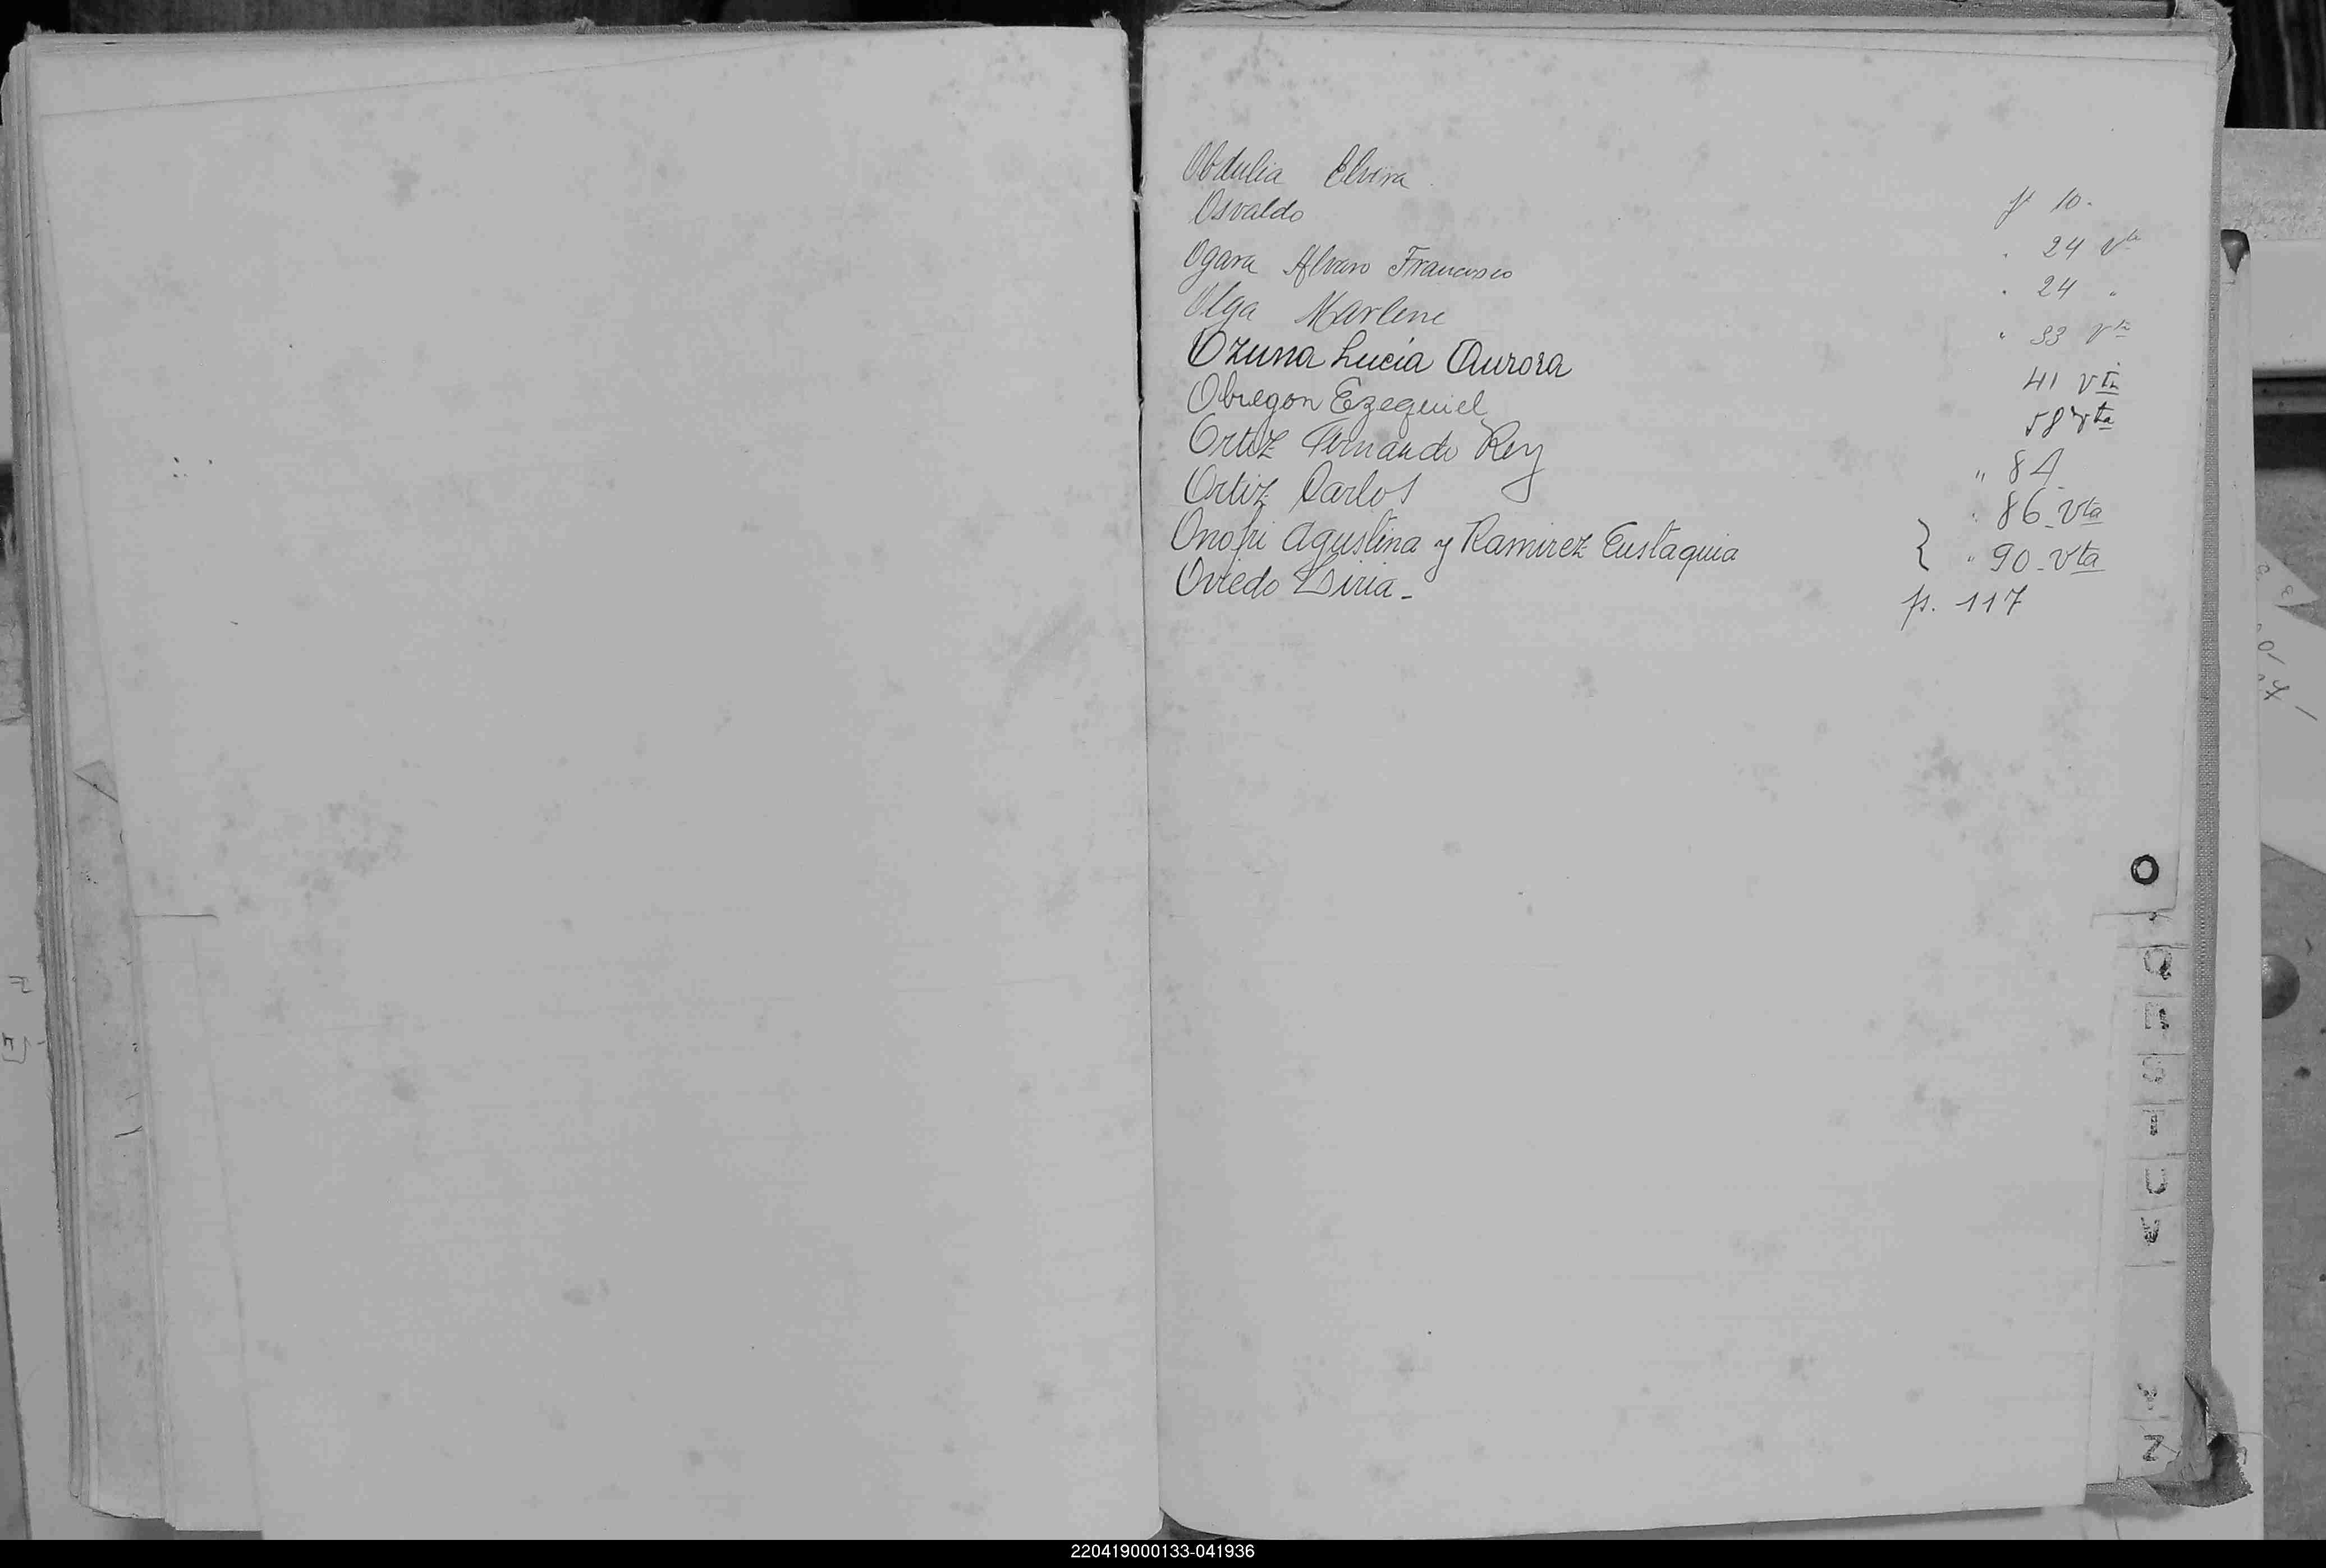 Obdulia Elvira f 10.
Osvaldo " 24 vta
Ogara Alvaro Francisco " 24 "
Olga Marlene " 33 vta
Ozuna Lucía Aurora 41 vta
Obregon Ezequiel 58 vta
Ortiz Fernando Rey " 84
Ortiz Carlos " 86 - vta
Onofri Agustina y Ramirez Eustaquia } " 90 - vta
Oviedo Liria - p. 117
O
Q
S
T
U
V
Z
220419000133-041936